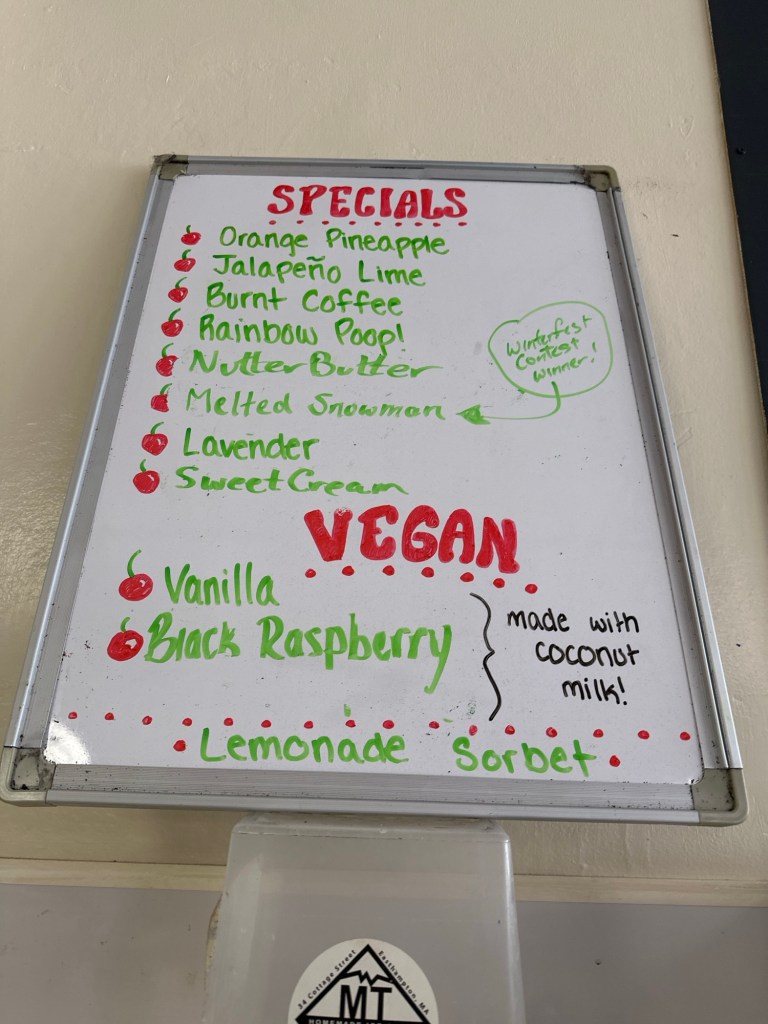 SPECIALS
Orange Pineapple
Jalapeño Lime
Burnt Coffee
Rainbow Poop!
Nutter Butter
Melted Snowman
Winterfest
Contest
Winner!
Lavender
Sweet Cream
VEGAN
Vanilla
Black Raspberry
made with
coconut
milk!
Lemonade Sorbet
34 Cottage Street
Easthampton, MA
MT
HOMEMADE